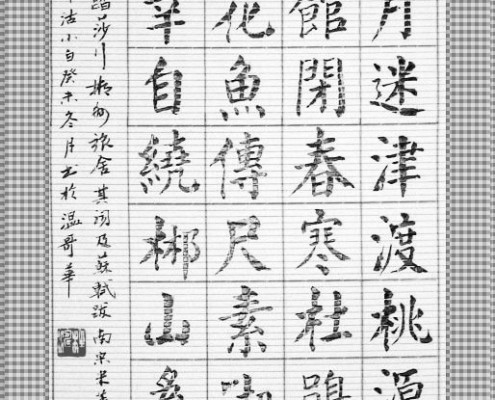 月迷津渡桃源
館閉春寒杜鵑
花魚傳尺素
幸自繞郴山為
踏莎行郴州旅舍其詞及蘇軾跋南宋米
沽小白癸未冬月书於温哥華